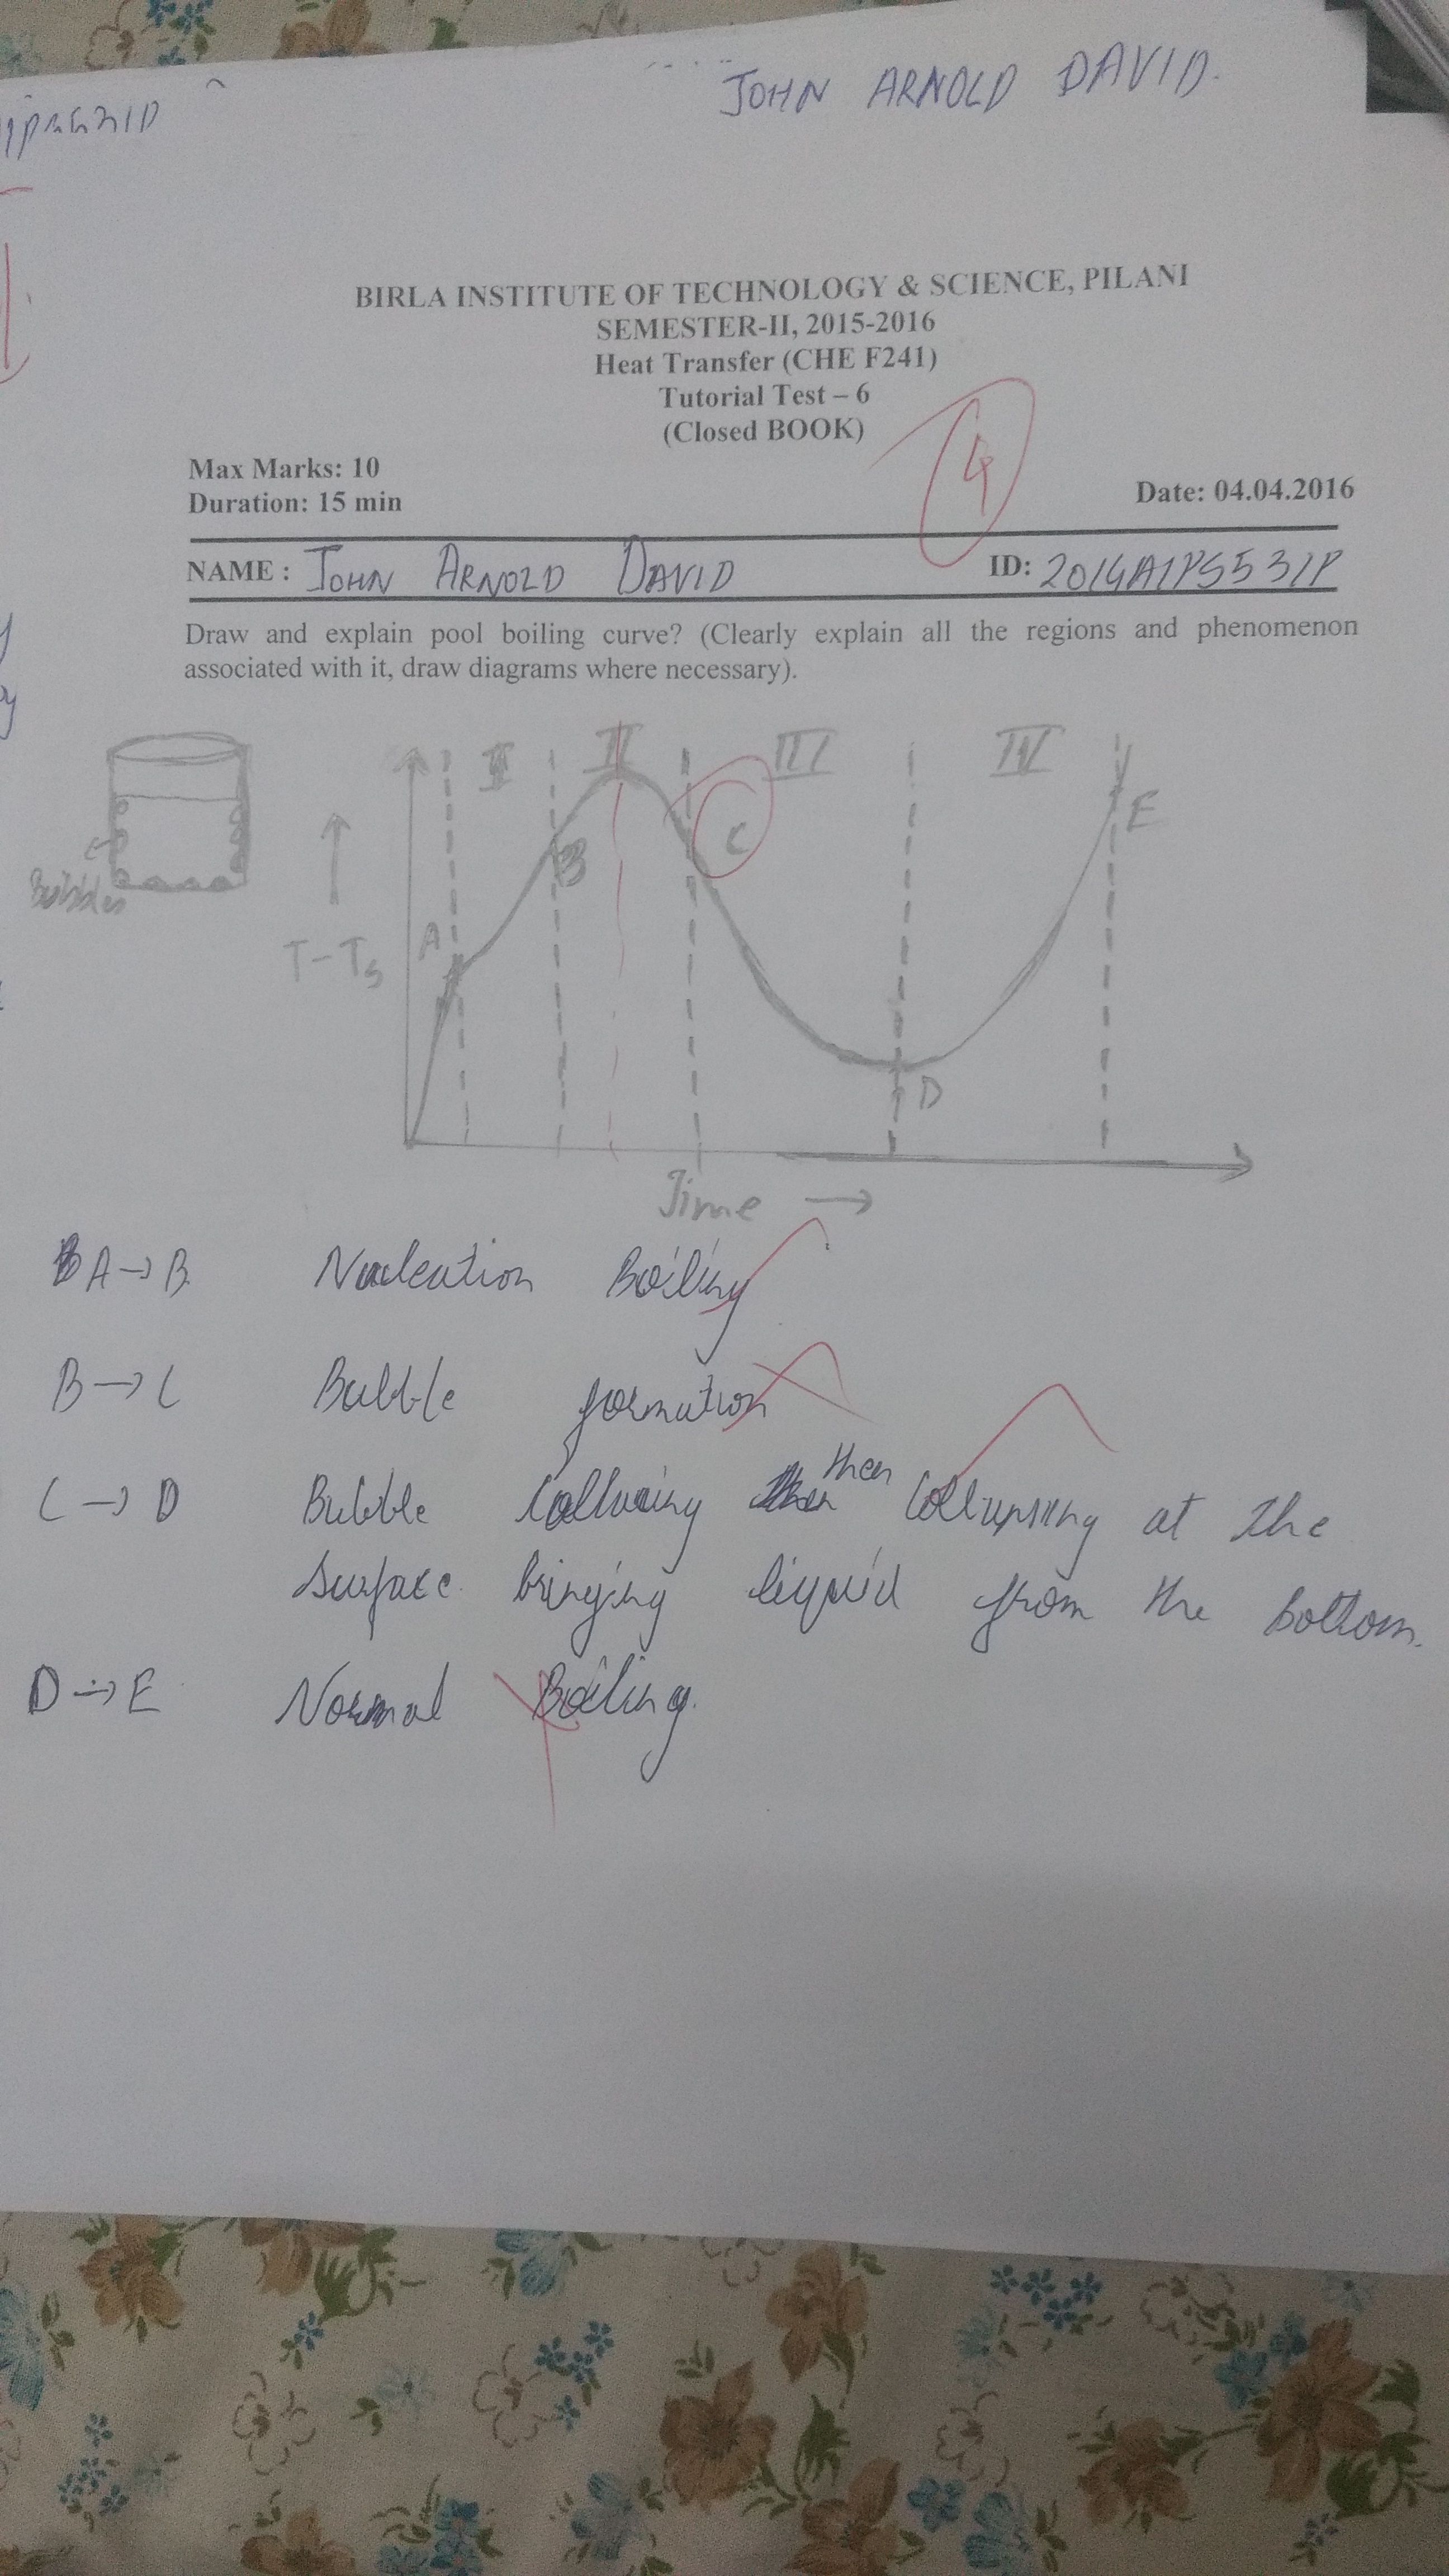 JOHN ARNOLD DAVID.
BIRLA INSTITUTE OF TECHNOLOGY & SCIENCE, PILANI
SEMESTER-II, 2015-2016
Heat Transfer (CHE F241)
Tutorial Test – 6
(Closed BOOK)
4
Max Marks: 10
Duration: 15 min
Date: 04.04.2016
NAME : JOHN ARNOLD DAVID ID: 2014A1PS531P
Draw and explain pool boiling curve? (Clearly explain all the regions and phenomenon
associated with it, draw diagrams where necessary).
II II III IV
Bubbles
T-Ts
A
B
C
D
E
Time →
A → B Nucleation Boiling
B → C Bubble formation
C → D Bubble then Collapsing at the
surface bringing liquid from the bottom.
D → E Normal Boiling.